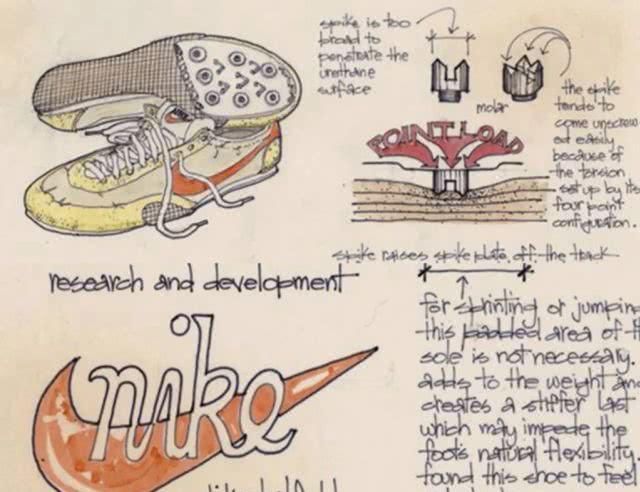 spike is too
broad to
penetrate the
urethane
surface
molar
the spike
tends to
come unscrew
ed easily
because of
the torsion
set up by its
four point
configuration.
POINT LOAD
spike raises spike plate off the track
research and development
nike
for sprinting or jumping
this padded area of th
sole is not necessary.
adds to the weight and
creates a stiffer last
which may impede the
foot's natural flexibility.
found this shoe to feel